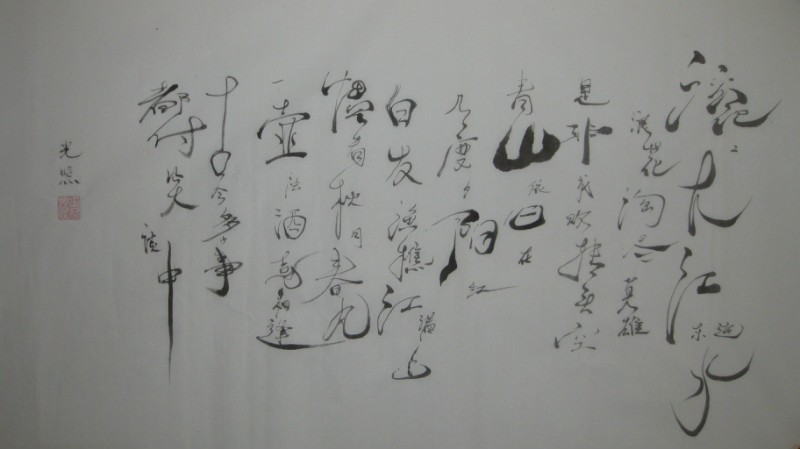 滚々长江东逝水
浪花淘尽英雄
是非成败转头空
青山依旧在
几度夕阳红
白发渔樵江渚上
惯看秋月春风
一壶浊酒喜相逢
古今多少事
都付笑谈中
光照